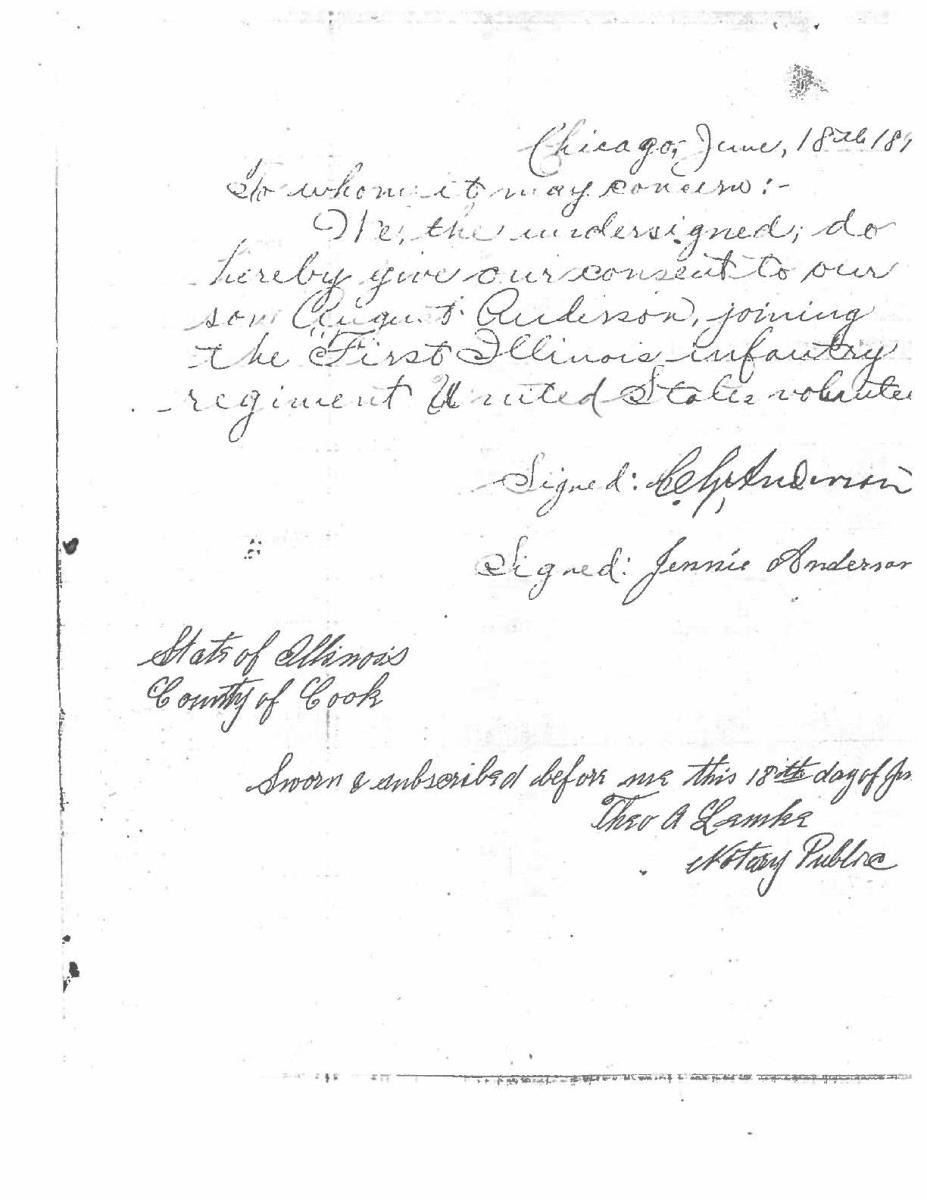 Chicago, June, 18th 189
To whom it may concern:-
We, the undersigned, do
hereby give our consent to our
son August Anderson, joining
the First Illinois infantry
regiment United States voluntee
Signed: Anderson
Signed: Jennie Anderson
State of Illinois
County of Cook
Sworn & subscribed before me this 18th day of Ju
Theo A Lemke
Notary Public